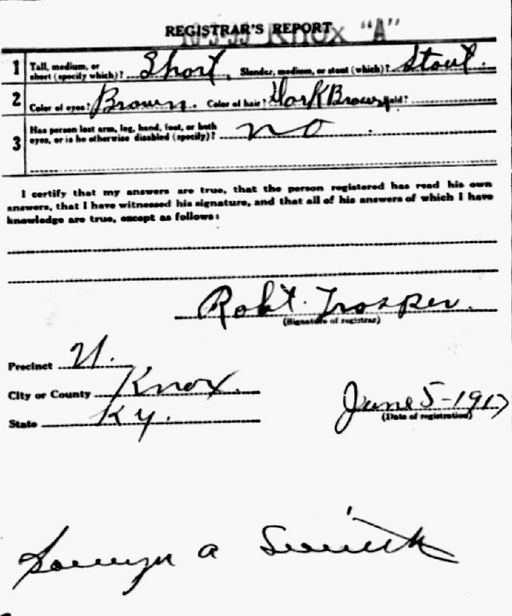 REGISTRAR'S REPORT
Knox "A"
1 Tall, medium, or short (specify which)? Short. Slender, medium, or stout (which)? Stout.
2 Color of eyes? Brown. Color of hair? Dark Brown
3 Has person lost arm, leg, hand, foot, or both eyes, or is he otherwise disabled (specify)? no.
I certify that my answers are true, that the person registered has read his own
answers, that I have witnessed his signature, and that all of his answers of which I have
knowledge are true, except as follows:
Robt. Trosper.
(Signature of registrar)
Precinct
City or County Knox.
State Ky.
June 5-1917
(Date of registration)
a